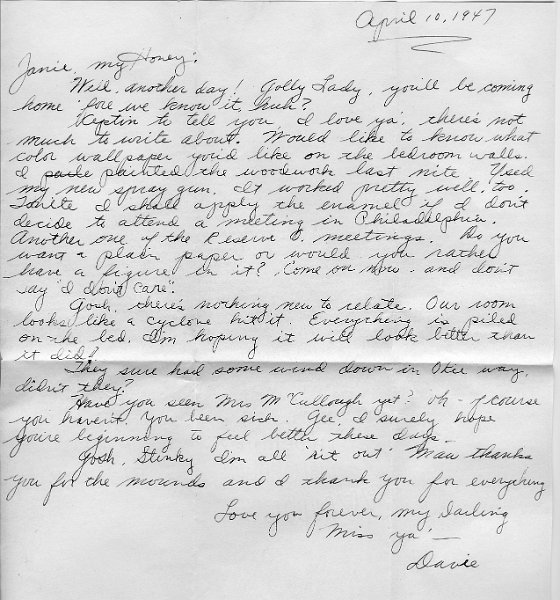 April 10, 1947
Janie, my Honey:
Well, another day! Golly Lady, you'll be coming
home 'fore we know it, huh?
'Ceptin to tell you I love ya', there's not
much to write about. Would like to know what
color wallpaper you'd like on the bedroom walls.
I painted the woodwork last nite. Used
my new spray gun. It worked pretty well, too.
Tonite I shall apply the enamel if I don't
decide to attend a meeting in Philadelphia.
Another one of the Reserve O. meetings. Do you
want a plain paper or would you rather
have a figure in it? Come on now - and don't
say "I don't care".
Gosh, there's nothing new to relate. Our room
looks like a cyclone hit it. Everything is piled
on the bed. I'm hoping it will look better than
it did!
They sure had some wind down in Okie way,
didn't they?
Have you seen Mrs McCullough yet? Oh - of course
you haven't. You been sick. Gee, I surely hope
you're beginning to feel better these days -
Gosh, Stinky I'm all "rit out" Maw thanks
you for the mounds and I thank you for everything
Love you forever, my Darling
Miss ya' -
Davie